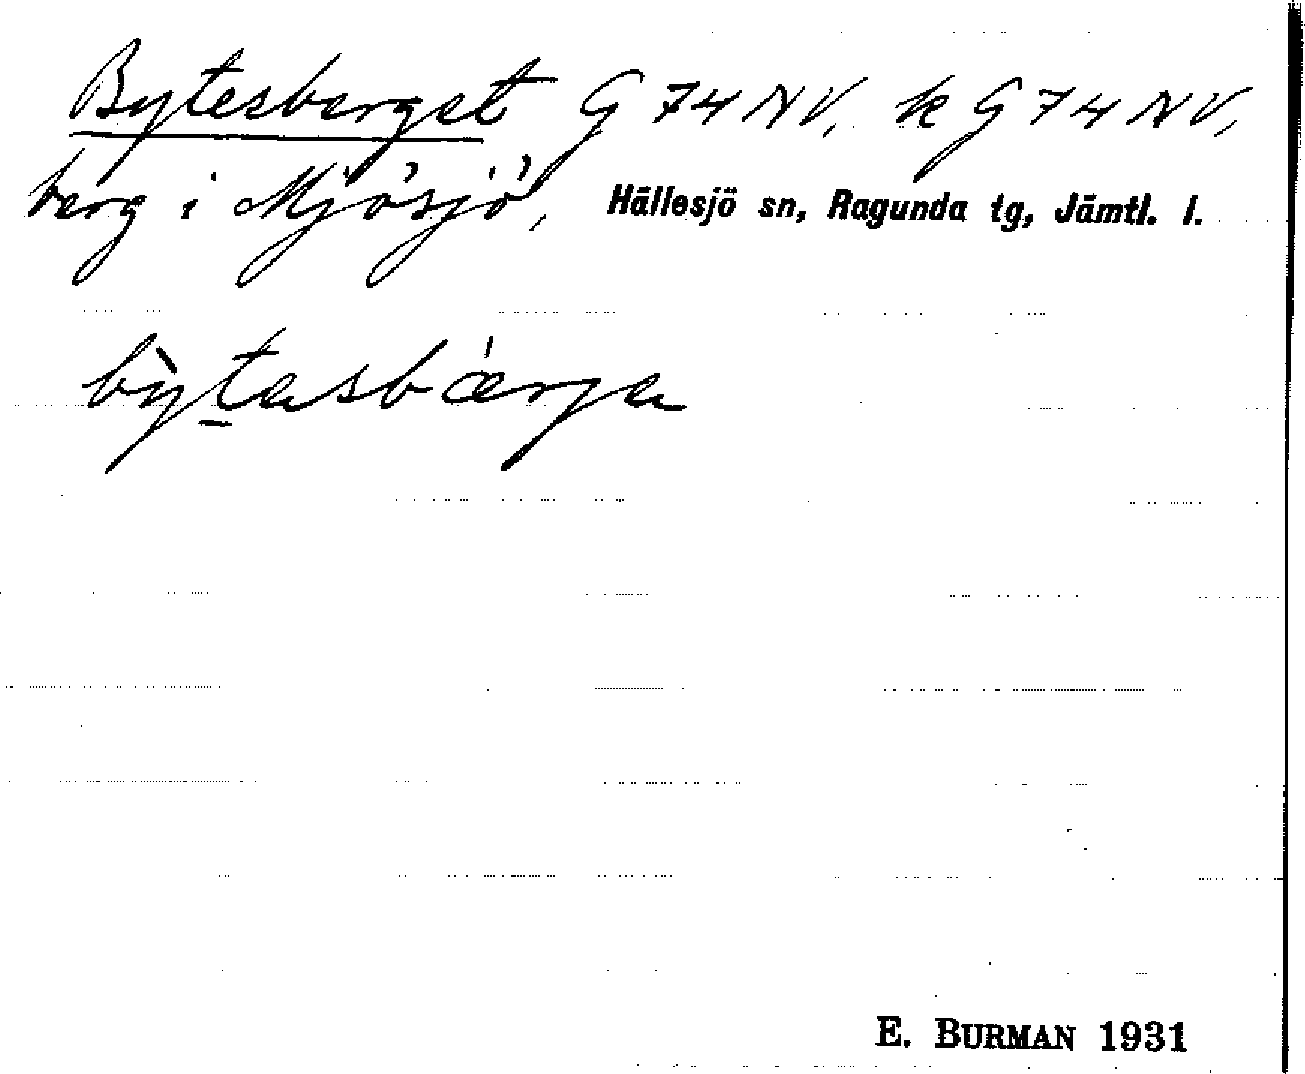 Bytesberget G 74 NV, k G 74 NV,
berg i Mjösjö, Hällesjö sn, Ragunda tg, Jämtl. l.
bỳtasbǽrja
E. BURMAN 1931